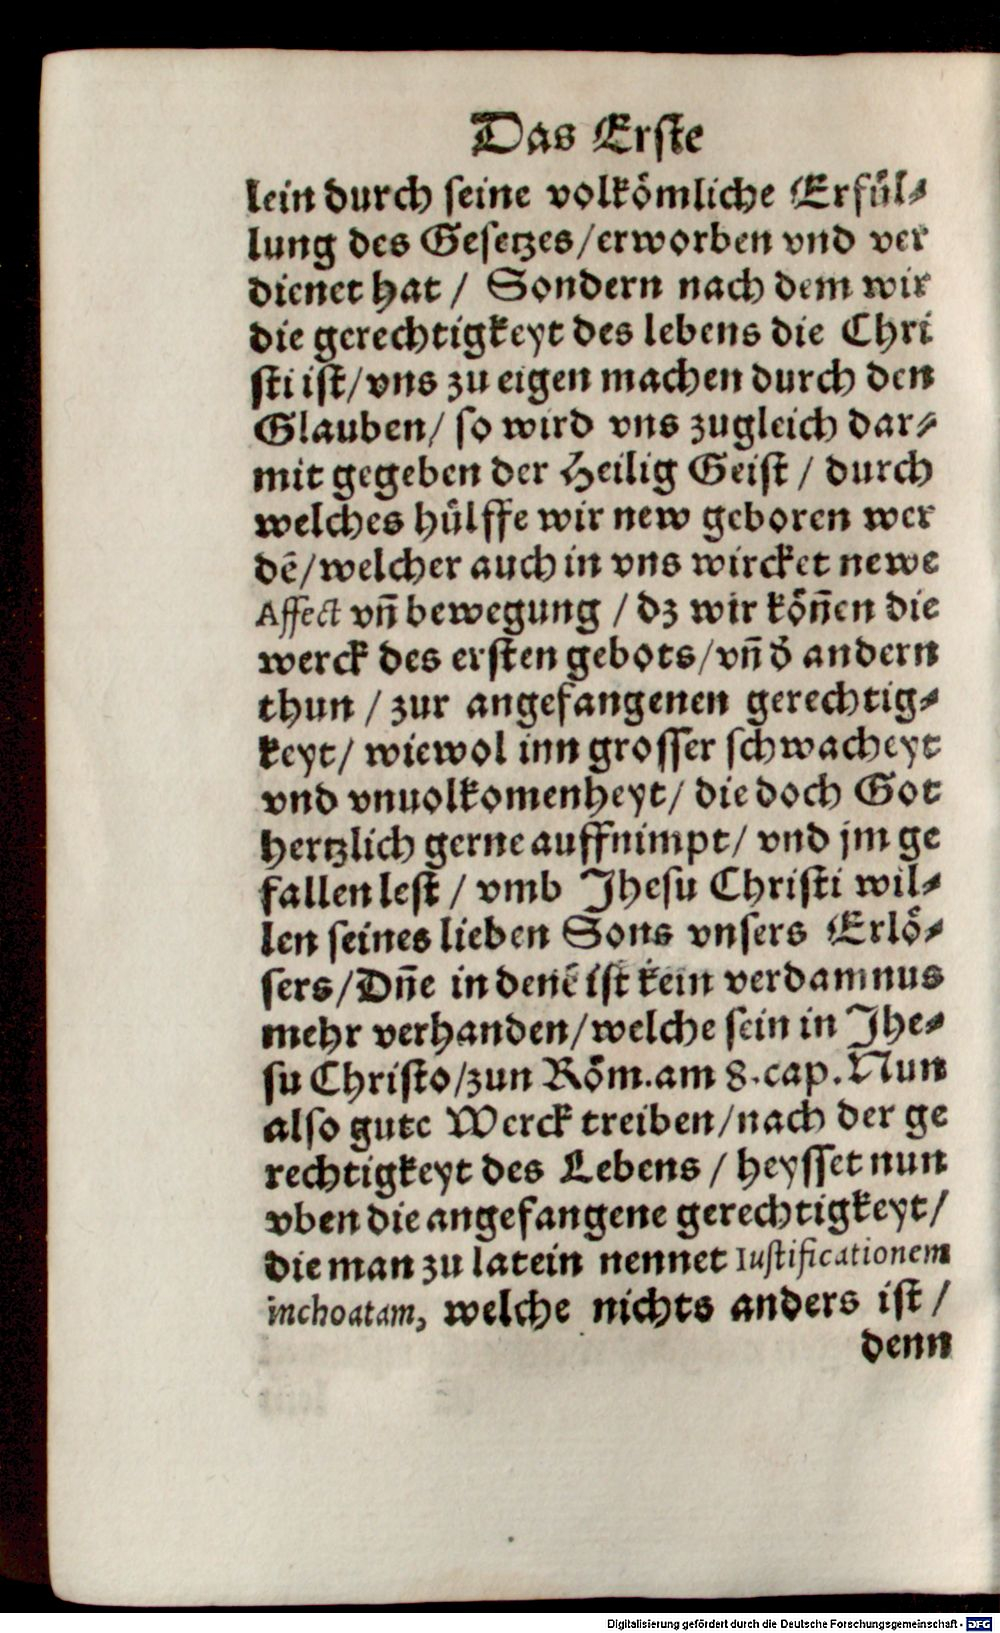 Das Erste
lein durch seine volkömliche Erfül⸗
lung des Gesetzes/erworben vnd ver
dienet hat / Sondern nach dem wir
die gerechtigkeyt des lebens die Chri
sti ist/vns zu eigen machen durch den
Glauben/ so wird vns zugleich dar⸗
mit gegeben der Heilig Geist / durch
welches hülffe wir new geboren wer
dē/welcher auch in vns wircket newe
Affect vn̄ bewegung / dz wir kön̄en die
werck des ersten gebots/vn̄ d̕ andern
thun / zur angefangenen gerechtig⸗
keyt/ wiewol inn grosser schwacheyt
vnd vnuolkomenheyt/ die doch Got
hertzlich gerne auffnimpt/ vnd jm ge
fallen lest / vmb Jhesu Christi wil⸗
len seines lieben Sons vnsers Erlö⸗
sers/Dn̄e in denē ist kein verdamnus
mehr verhanden/welche sein in Jhe⸗
su Christo/zun Röm.am 8.cap.Nun
also gute Werck treiben/nach der ge
rechtigkeyt des Lebens / heysset nun
vben die angefangene gerechtigkeyt/
die man zu latein nennet Iustificationem
inchoatam, welche nichts anders ist /
denn
Digitalisierung gefördert durch die Deutsche Forschungsgemeinschaft - DFG